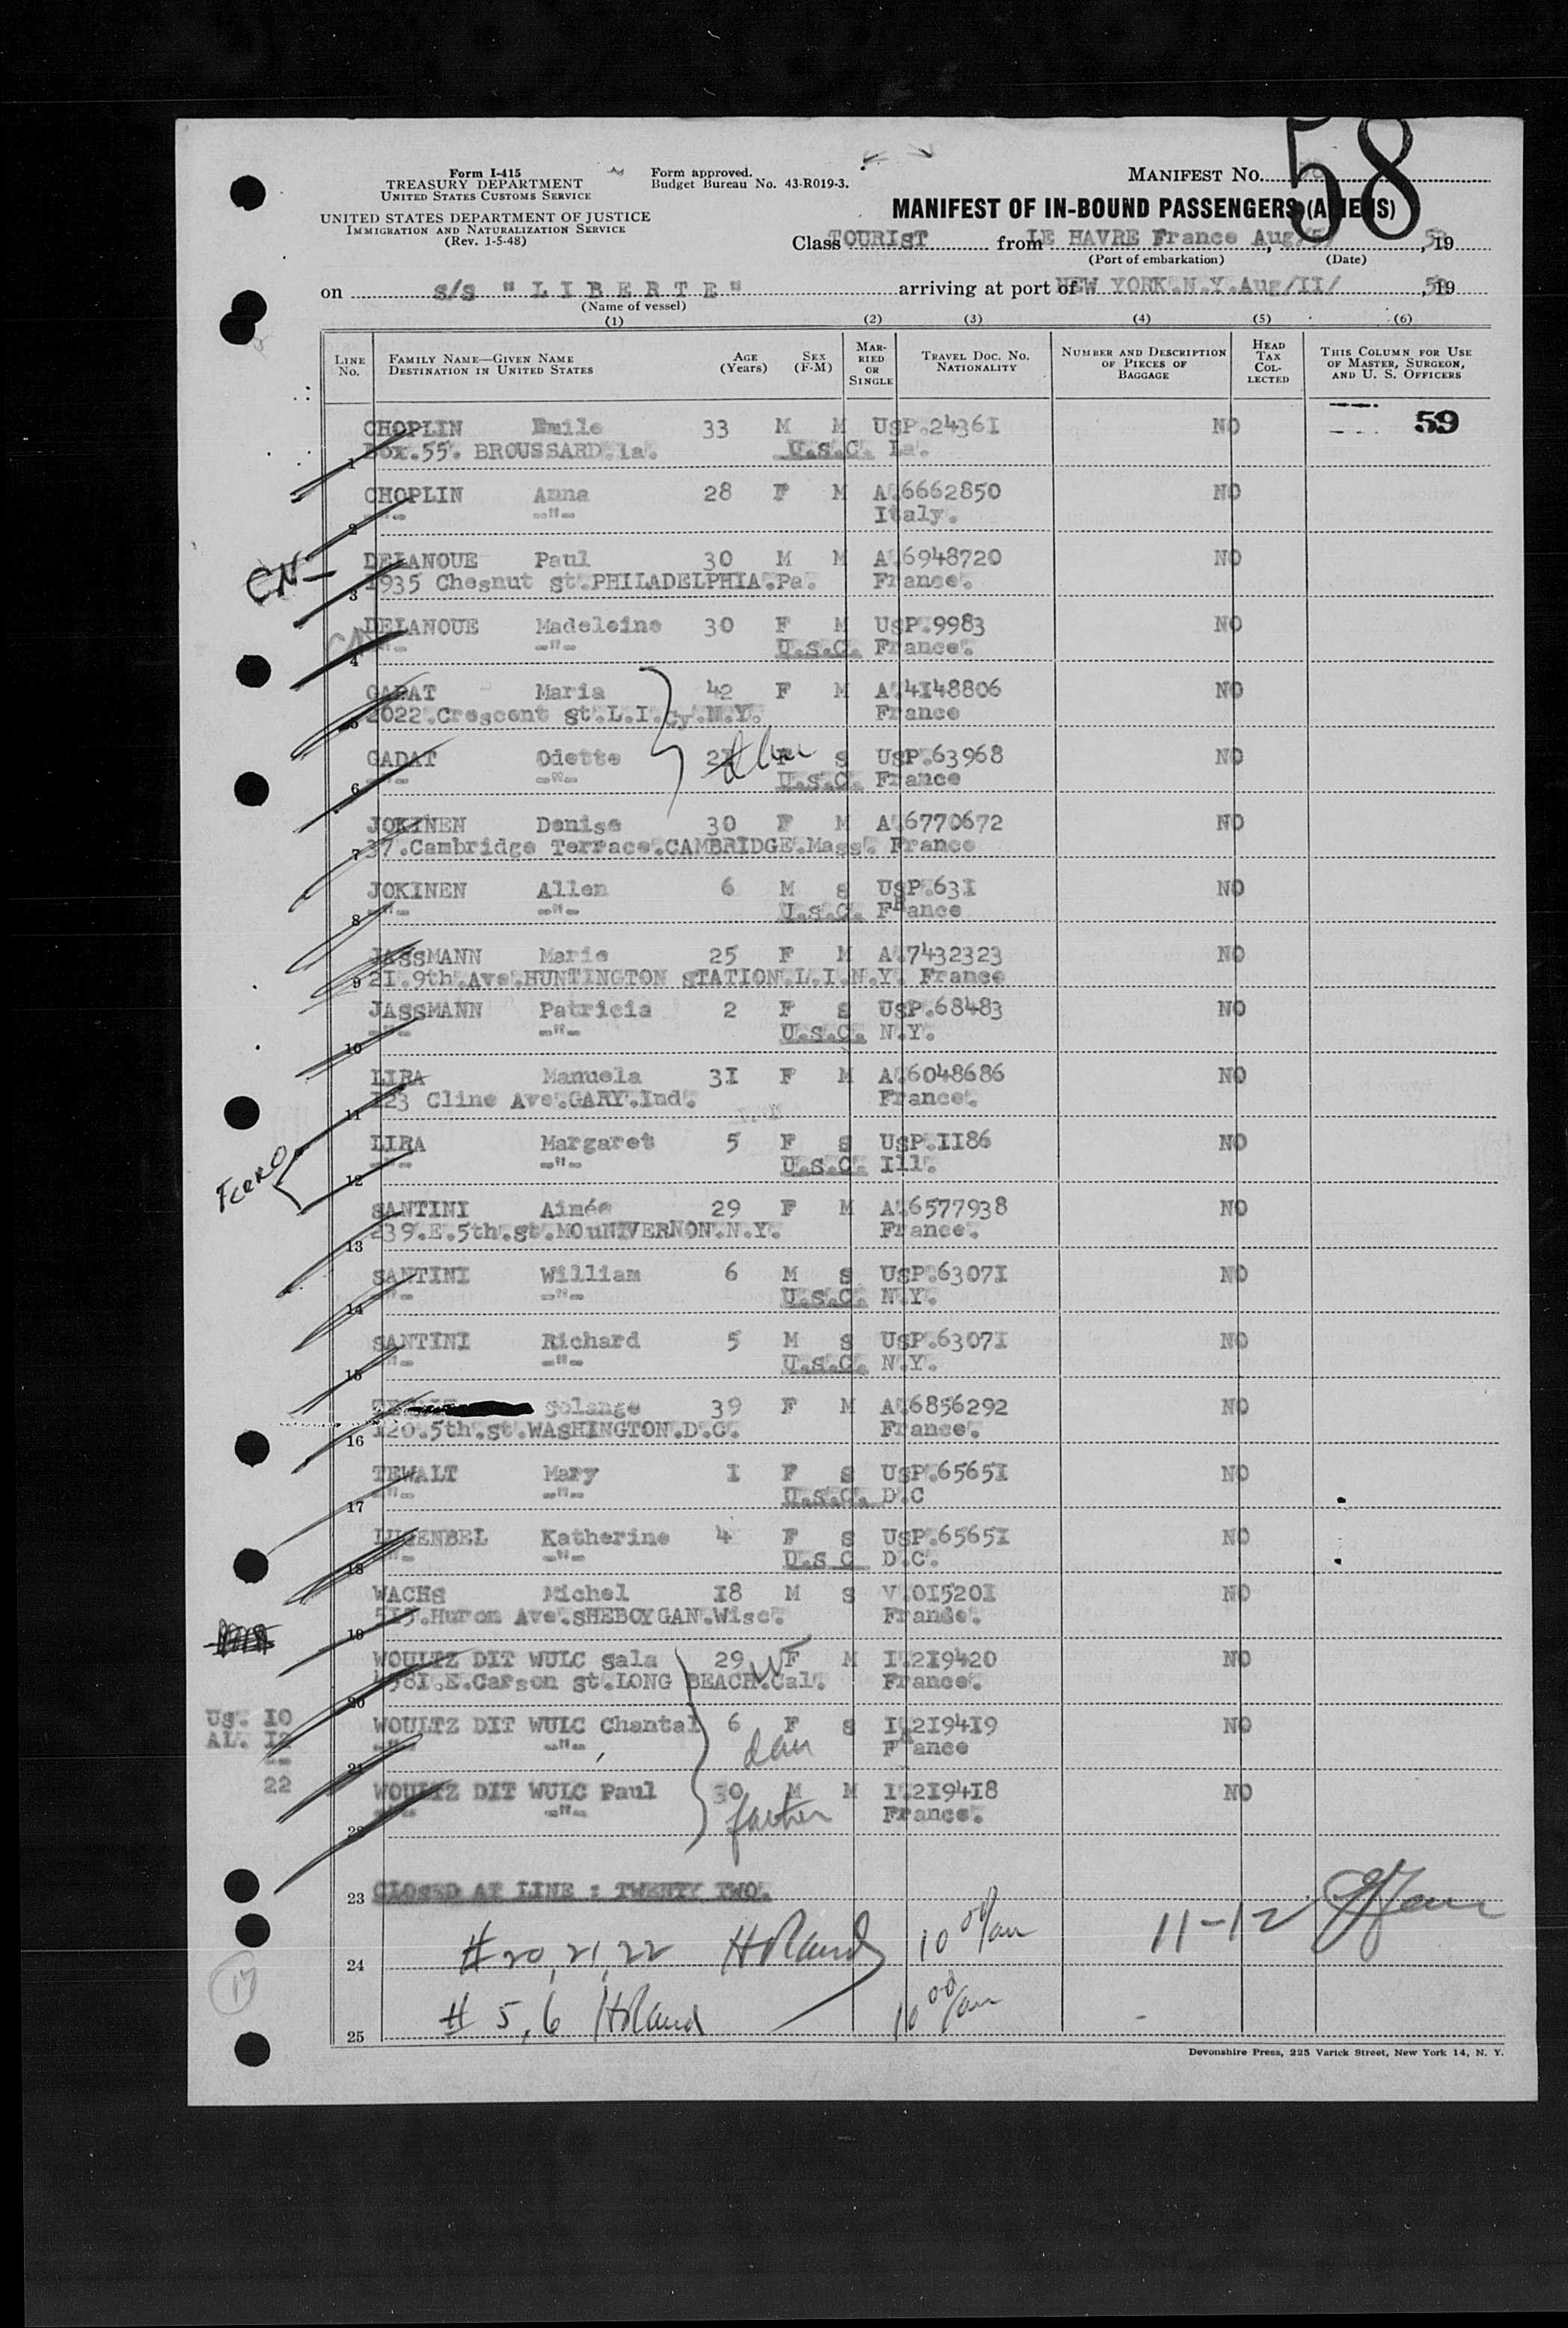 58
Form I-415
TREASURY DEPARTMENT
UNITED STATES CUSTOMS SERVICE
UNITED STATES DEPARTMENT OF JUSTICE
IMMIGRATION AND NATURALIZATION SERVICE
(Rev. 1-5-48)
Form approved.
Budget Bureau No. 43-R019-3.
MANIFEST NO.
MANIFEST OF IN-BOUND PASSENGERS (ALIENS)
Class TOURIST from LE HAVRE France Aug/5/, 19
(Port of embarkation) (Date)
on s/s "LIBERTE" arriving at port of NEW YORK.N.Y.Aug/II/, 19
(Name of vessel)
(1) (2) (3) (4) (5) (6)
LINE NO. FAMILY NAME—GIVEN NAME DESTINATION IN UNITED STATES AGE (YEARS) SEX (F-M) MARRIED OR SINGLE TRAVEL DOC. NO. NATIONALITY NUMBER AND DESCRIPTION OF PIECES OF BAGGAGE HEAD TAX COLLECTED THIS COLUMN FOR USE OF MASTER, SURGEON, AND U. S. OFFICERS
CHOPLIN Emile 33 M M UsP.2436I NO 59
1 Box.55. BROUSSARD.la. U.s.C. La.
CHOPLIN Anna 28 F M A.6662850 NO
2 -"- -"- Italy.
CN-
DELANOUE Paul 30 M M A.6948720 NO
3 1935 Chesnut st.PHILADELPHIA.Pa. France.
DELANOUE Madeleine 30 F M UsP.9983 NO
4 -"- -"- U.s.C. France.
GADAT Maria 42 F M A.4I48806 NO
5 2022.Crescent st.L.I.Cy.N.Y. France
GADAT Odette 2I F s UsP.63968 NO
6 -"- -"- U.s.C. France
JOKINEN Denise 30 F M A.6770672 NO
7 37.Cambridge Terrace.CAMBRIDGE.Mass. France
JOKINEN Allen 6 M s UsP.63I NO
8 -"- -"- U.s.C. France
JASSMANN Marie 25 F M A.7432323 NO
9 2I.9th.Ave.HUNTINGTON sTATION.L.I.N.Y. France
JASSMANN Patricia 2 F s UsP.68483 NO
10 -"- -"- U.s.C. N.Y.
LIRA Manuela 3I F M A.6048686 NO
11 I23 Cline Ave.GARY.Ind. France.
LIRA Margaret 5 F s UsP.II86 NO
12 -"- -"- U.s.C. Ill.
sANTINI Aimée 29 F M A.6577938 NO
13 239.E.5th.st.MOuNTVERNON.N.Y. France.
sANTINI William 6 M s UsP.6307I NO
14 -"- -"- U.s.C. N.Y.
sANTINI Richard 5 M s UsP.6307I NO
15 -"- -"- U.s.C. N.Y.
solange 39 F M A.6856292 NO
16 I20.5th.st.WAsHINGTON.D.C. France.
TEWALT Mary I F s UsP.6565I NO
17 -"- -"- U.s.C. D.C
LUGENBEL Katherine 4 F s UsP.6565I NO
18 -"- -"- U.s C D.C.
WACHs Michel I8 M s V.0I520I NO
19 5I5.Huron Ave.sHEBOYGAN.Wisc. France.
WOULTZ DIT WULC sala 29 F M I.2I9420 NO
20 458I.E.Carson st.LONG BEACH.Cal. France.
Us. I0
AL. I2
--
22
WOULTZ DIT WULC Chantal 6 F s I.2I94I9 NO
21 -"- -"- dau France
WOULTZ DIT WULC Paul 30 M M I.2I94I8 NO
22 -"- -"- father France.
23 CLOSED AT LINE : TWENTY TWO.
24 # 20, 21, 22 Holand 10 00/am 11-12
17
25 # 5, 6 Holand 10 00/am
Devonshire Press, 225 Varick Street, New York 14, N. Y.